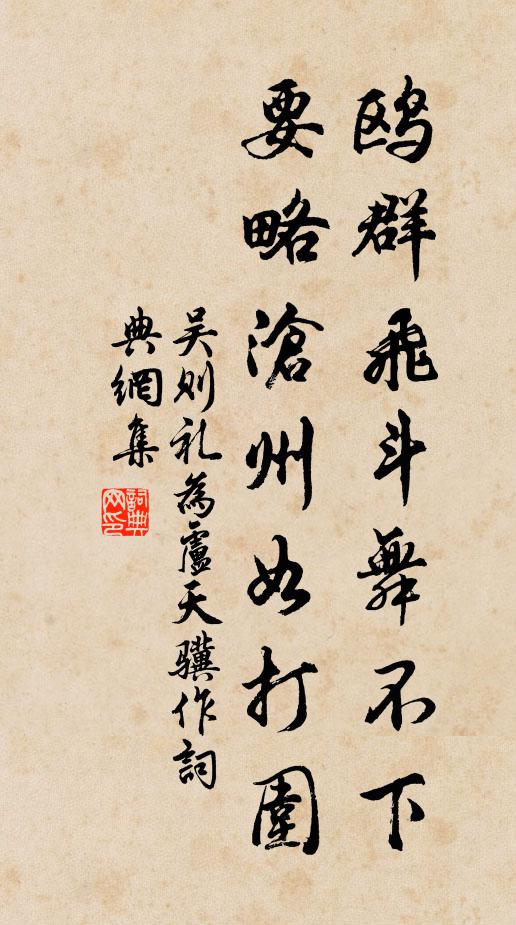 鸥群飛斗舞不下
要略滄州如打圍
吴则礼為盧天驥作詞
典網集
詞典网印